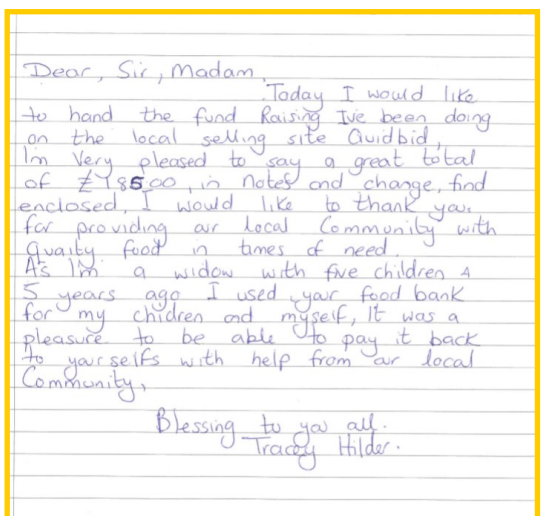 Dear, Sir, Madam,
Today I would like
to hand the fund Raising Ive been doing
on the local selling site Quidbid,
Im Very pleased to say a great total
of £185.00, in notes and change, find
enclosed, I would like to thank you
for providing our local Community with
Quaity food in times of need.
As Im a widow with five children 4
5 years ago I used your food bank
for my chidren and myself, It was a
pleasure to be able to pay it back
to your selfs with help from our local
Community,
Blessing to you all.
Tracey Hilder.